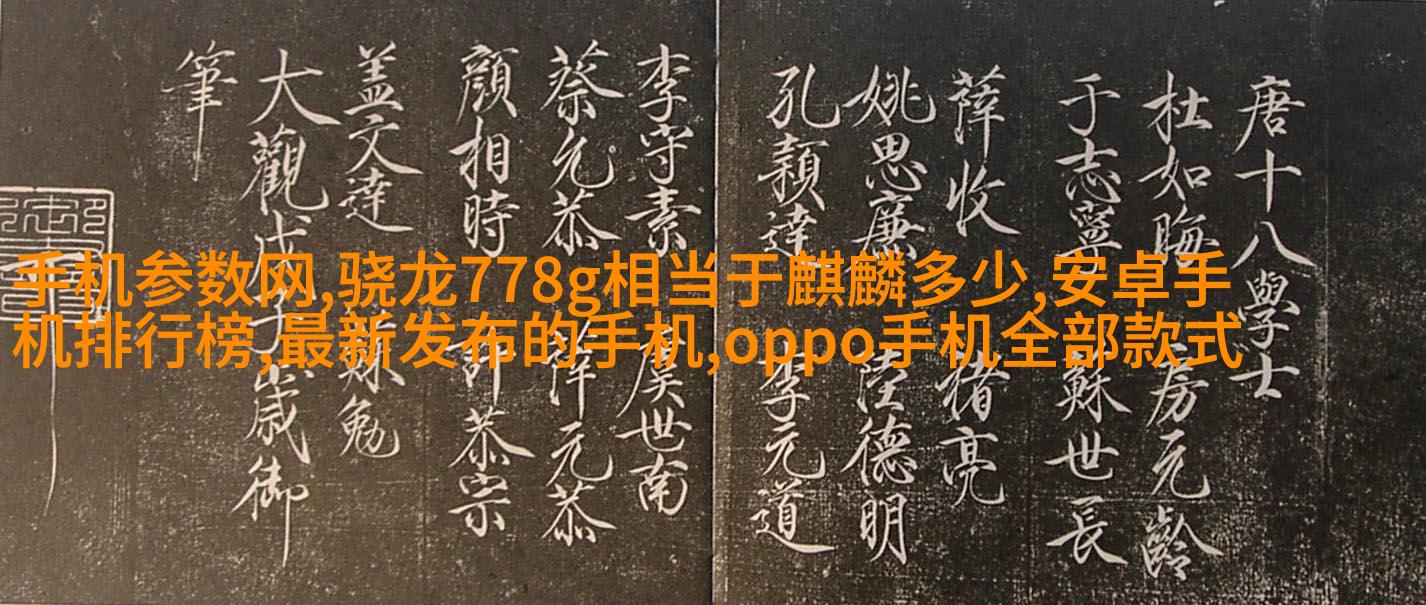 唐十八學士
杜如晦 房元齡
于志寧 蘇世長
薛收 褚亮
姚思廉 陸德明
孔穎達 李元道
李守素 虞世南
蔡允恭 薛元恭
顏相時 許恭宗
盖文達 蘇勉
大觀戊子歲御
筆
手机参数网,骁龙778g相当于麒麟多少,安卓手
机排行榜,最新发布的手机,oppo手机全部款式